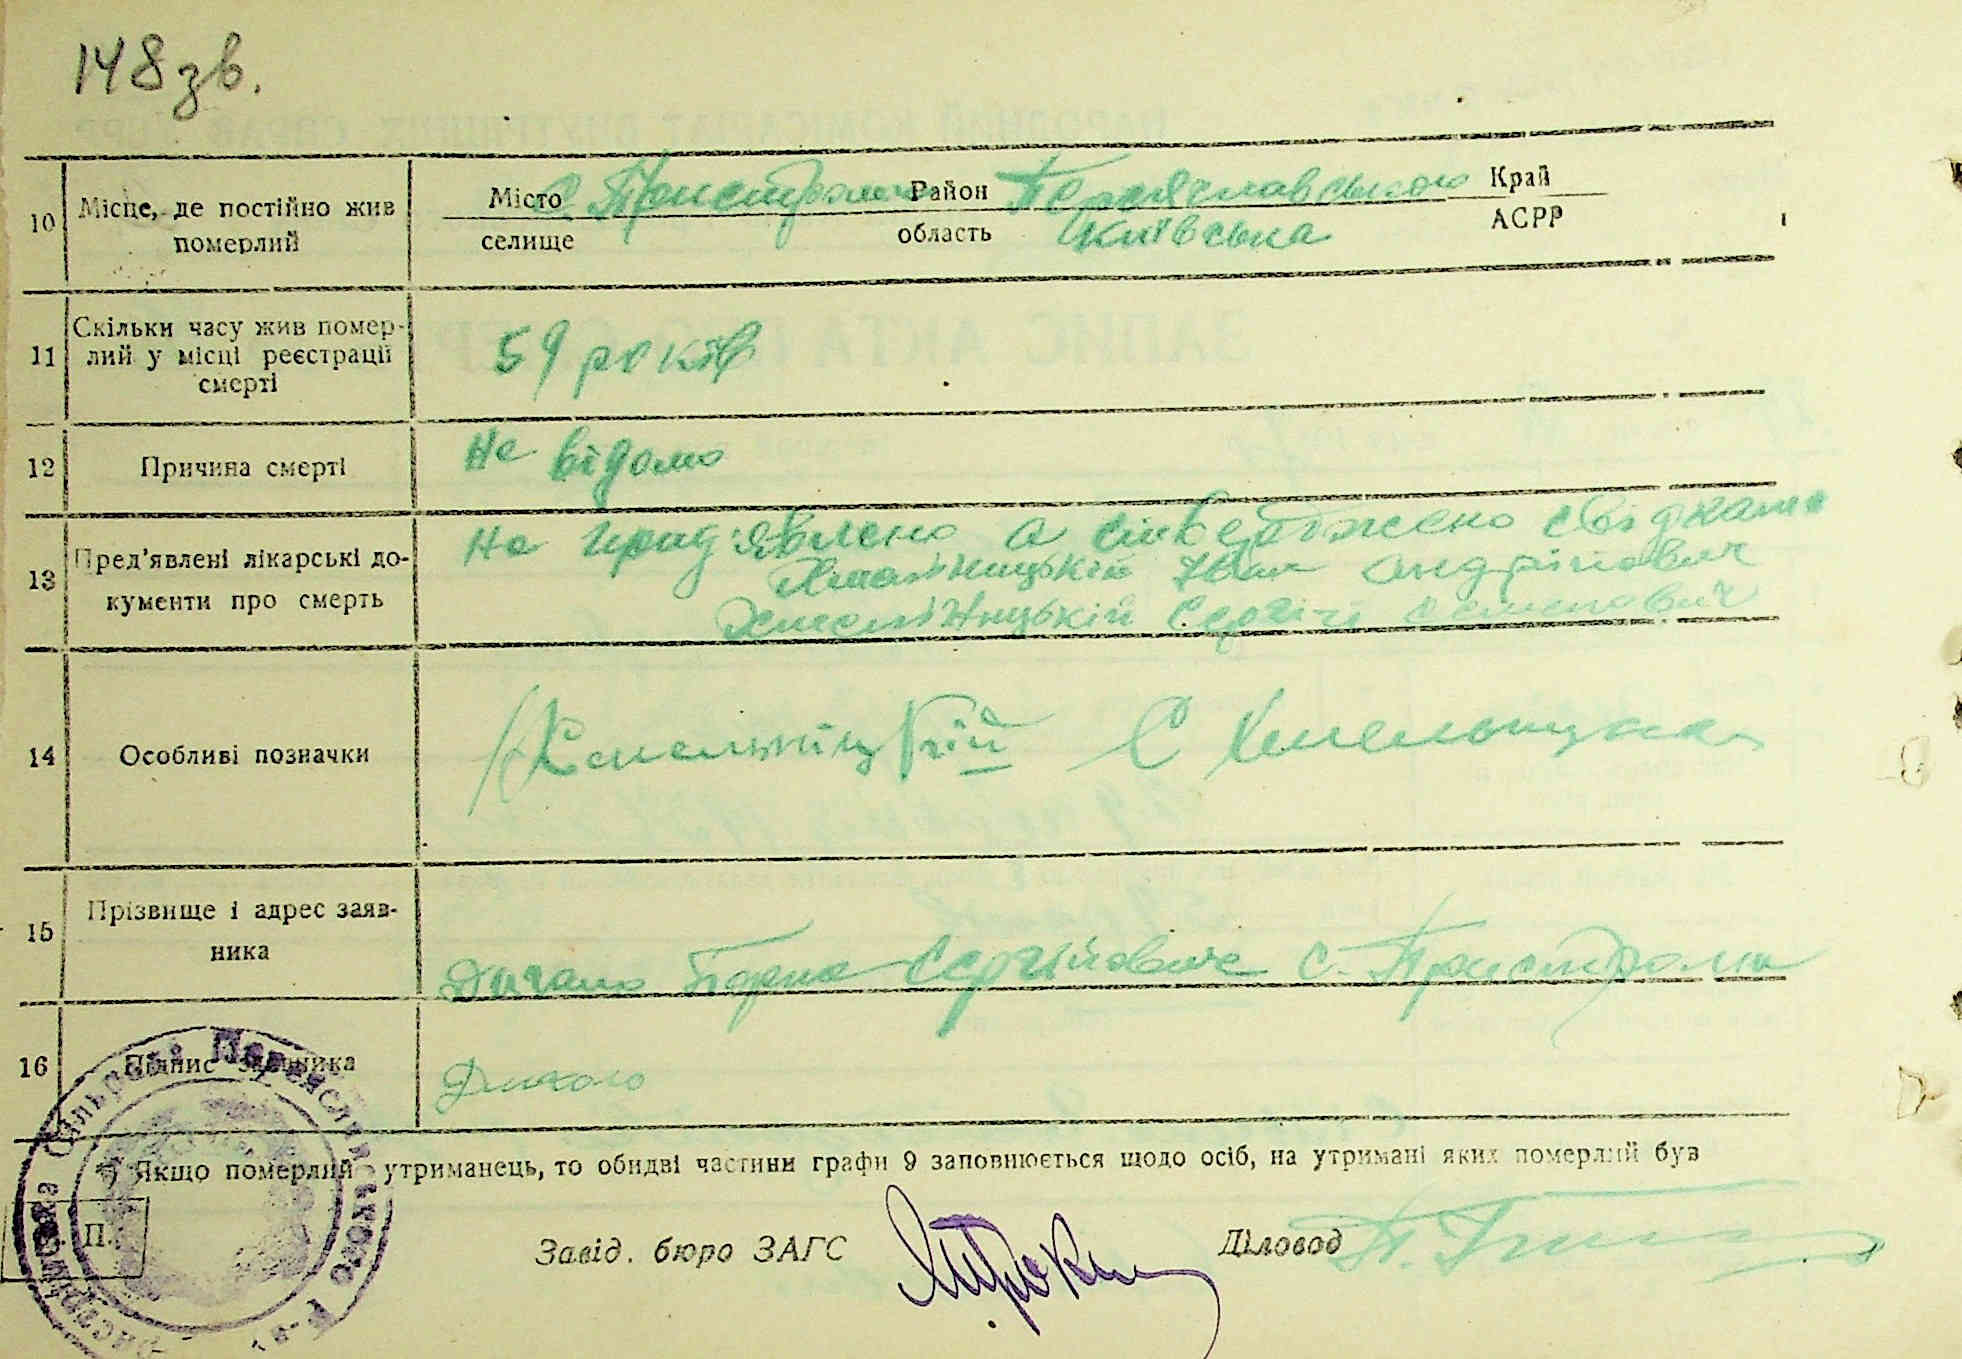 148 зв.
10 Місце, де постійно жив померлий Місто селище с Пристроми Район Переяславського область Київська Край АСРР
11 Скільки часу жив померлий у місці реєстрації смерті 59 років
12 Причина смерті Не відомо
13 Пред'явлені лікарські документи про смерть Не пред'явлено а стверджено свідками
Хмельницькій Іван Андрійович
Хмельницькій Сергій Семенович
14 Особливі позначки Хмельніцкій С Хмельницка
15 Прізвище і адрес заявника Дигало Сергійович с. Пристроми
16 Підпис заявника
*) Якщо померлий - утриманець, то обидві частини графи 9 заповнюється щодо осіб, на утримані яких померлий був
П.
Завід. бюро ЗАГС Діловод
Сільрада Переяславського Р-ну